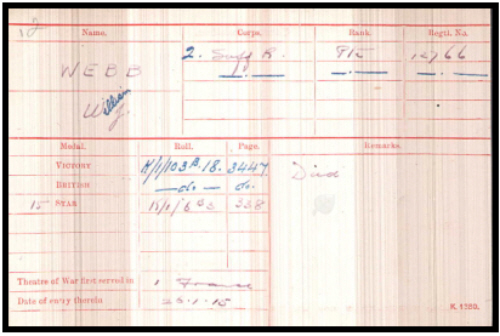 Name. Corps. Rank Regtl. No.
WEBB 2. Suff R. Pte 12766
—.— —.— —.—
William J.
Medal. Roll. Page. Remarks.
VICTORY H/1/103B.18. 3447 Died
BRITISH —do.— do.
15 STAR 15/1/6B3 338
Theatre of War first served in 1 France
Date of entry therein 26.1.15
K.1380.